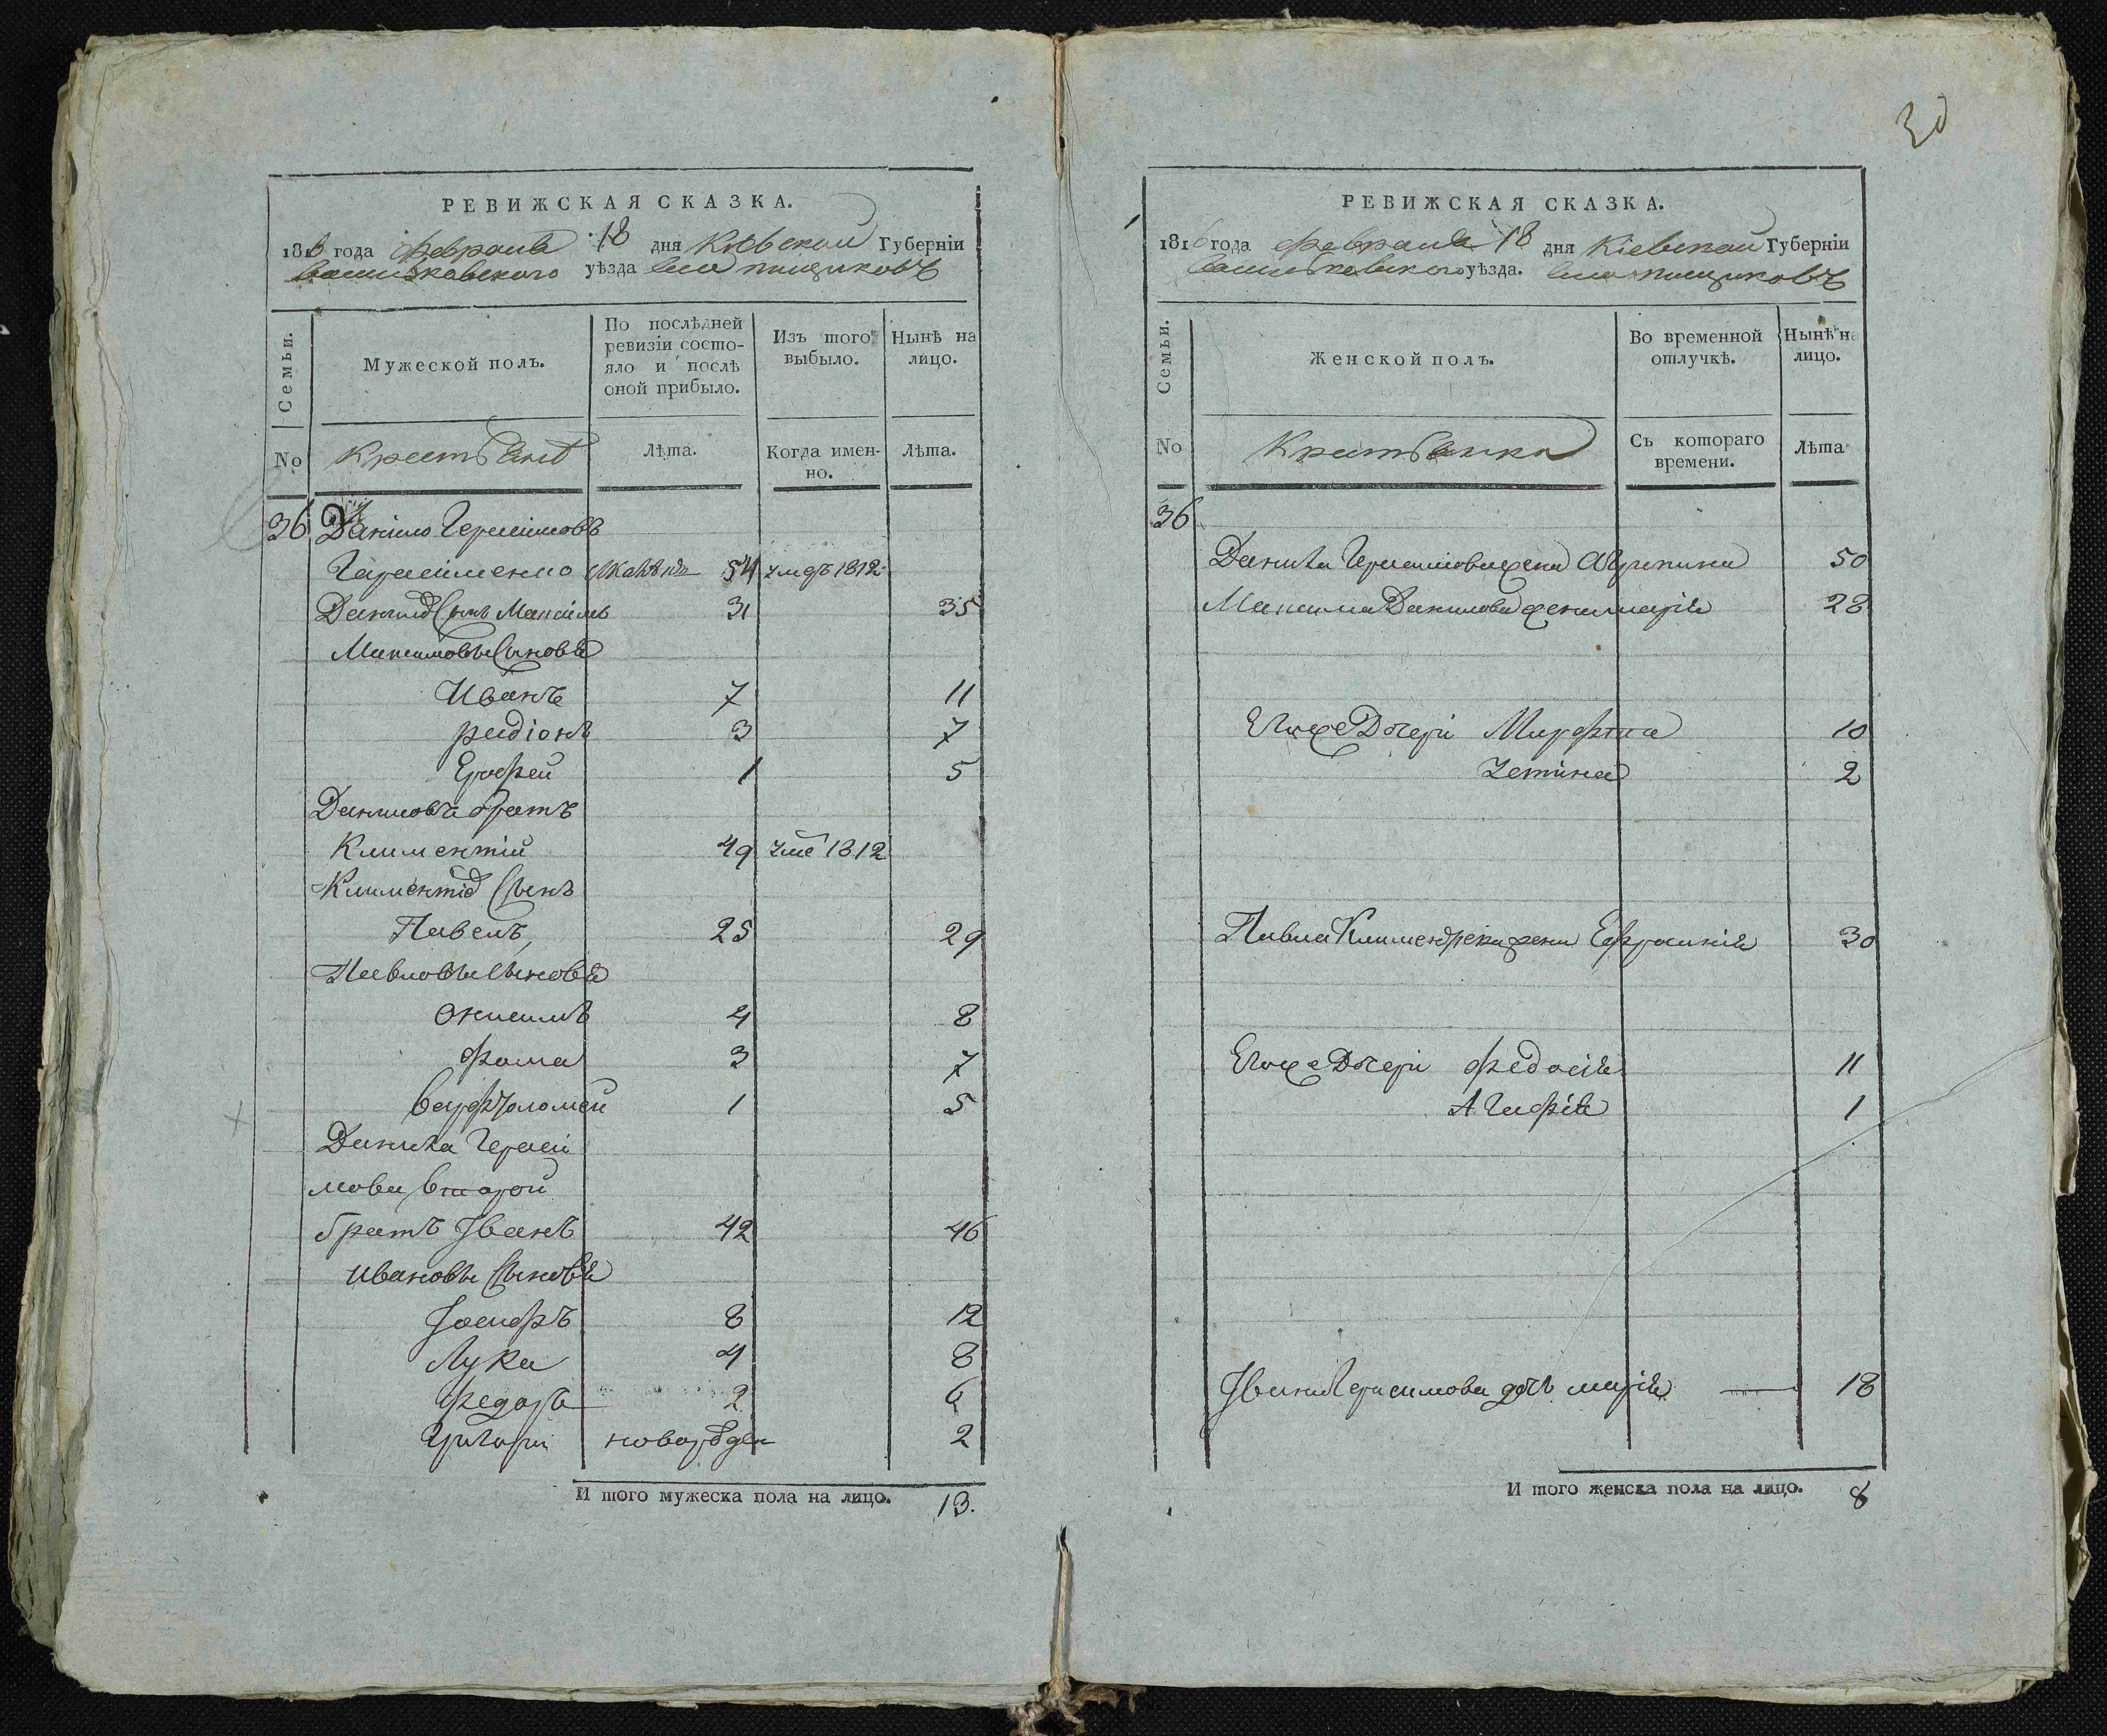 РЕВИЖСКАЯ СКАЗКА.
1816 года февраля 18 дня Кіевской Губерніи
васильковского уѣзда села пищиковъ
Семьи.
Мужеской полъ.
По послѣдней ревизіи состояло и послѣ оной прибыло.
Изъ того выбыло.
Нынѣ на лицо.
No
Крестьянѣ
Лѣта.
Когда именно.
Лѣта.
36 Данило Герасимовъ
Гарасименко 54 умръ 1812
Данилѣ Сынъ Максимъ 31 35
Максимовы Сыновя
Иванъ 7 11
радіонъ 3 7
Ерофей 1 5
Даниловъ братъ
Климентій 49 уме 1812
Климентіѣ Сынъ
Павелъ 25 29
Павловы Сыновя
Онисимъ 4 8
фома 3 7
варфоломей 1 5
Данила Гераси
мова второй
братъ Іванъ 42 46
ивановы Сыновя
Іосифъ 8 12
Лука 4 8
федоръ 2 6
Григори новорждён 2
И того мужеска пола на лицо. 13.
30
РЕВИЖСКАЯ СКАЗКА.
1816 года февраля 18 дня Кіевской Губерніи
васильковского уѣзда. села пищиковъ
Семьи.
Женской полъ.
Во временной отлучкѣ.
Нынѣ на лицо.
No
Крестьянки
Съ котораго времени.
Лѣта
36
Данила Герасимова жена Агрипина 50
Максима Данилова жена марія 28
Егоже Дочери Марфа 10
2
Павла жена Ефросинія 30
Егоже Дочери федосія 11
Агафія 1
Івана Герасимова дочь марія 18
И того женска пола на лицо. 8